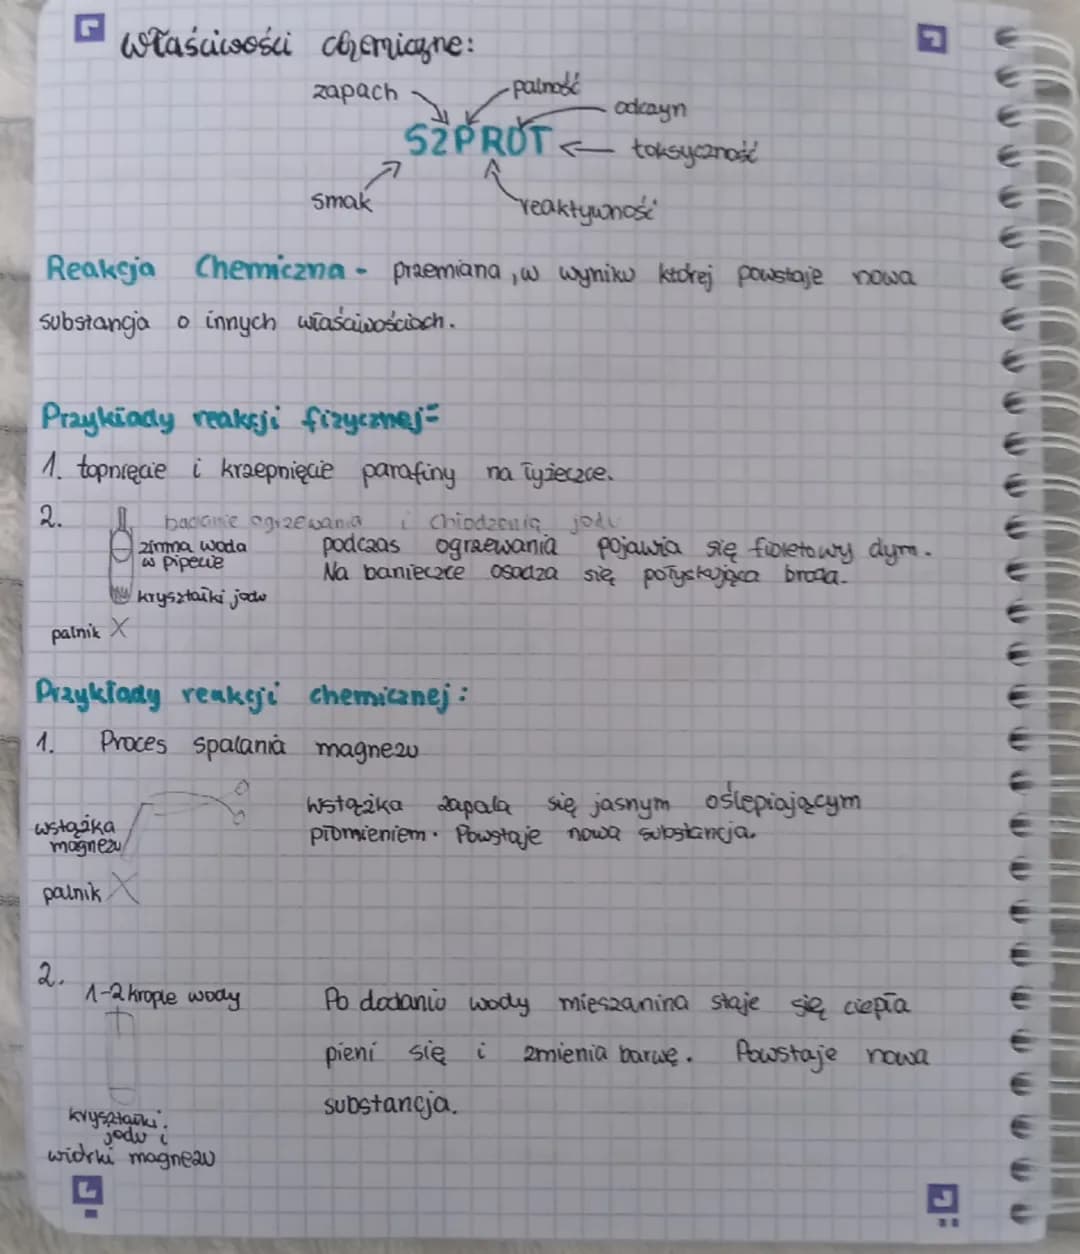 właściwości chemiczne:
zapach
palność
odczyn
SZPROT
toksyczność
smak
reaktywność
Reakcja Chemiczna - przemiana, w wyniku której powstaje nowa
substancja o innych właściwościach.
Przykłady reakcji fizycznej:
1. topnięcie i krzepnięcie parafiny na łyżeczce.
2. badanie ogrzewania i chłodzenia jodu
zimna woda
w pipecie
podczas ogrzewania pojawia się fioletowy dym.
Na banieczce osadza się połyskująca
kryształki jodu
palnik X
Przykłady reakcji chemicznej:
1. Proces spalania magnezu
wstążka
magnezu
wstążka zapala się jasnym oślepiającym
płomieniem. Powstaje nowa substancja.
palnik X
2.
1-2 krople wody
Po dodaniu wody mieszanina staje się ciepła
pieni się i zmienia barwę. Powstaje nowa
substancja.
kryształki
jodu i
wiórki magnezu